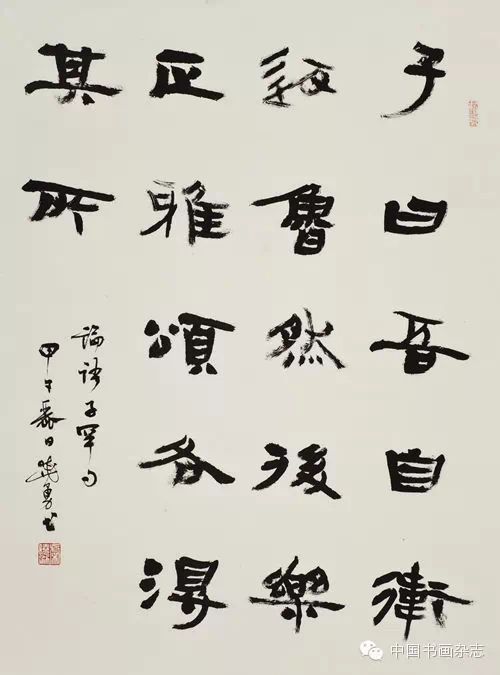 子曰吾自衛
返魯然後樂
正雅頌各得
其所
論語子罕句
甲午夏日曉勇书
中国书画杂志